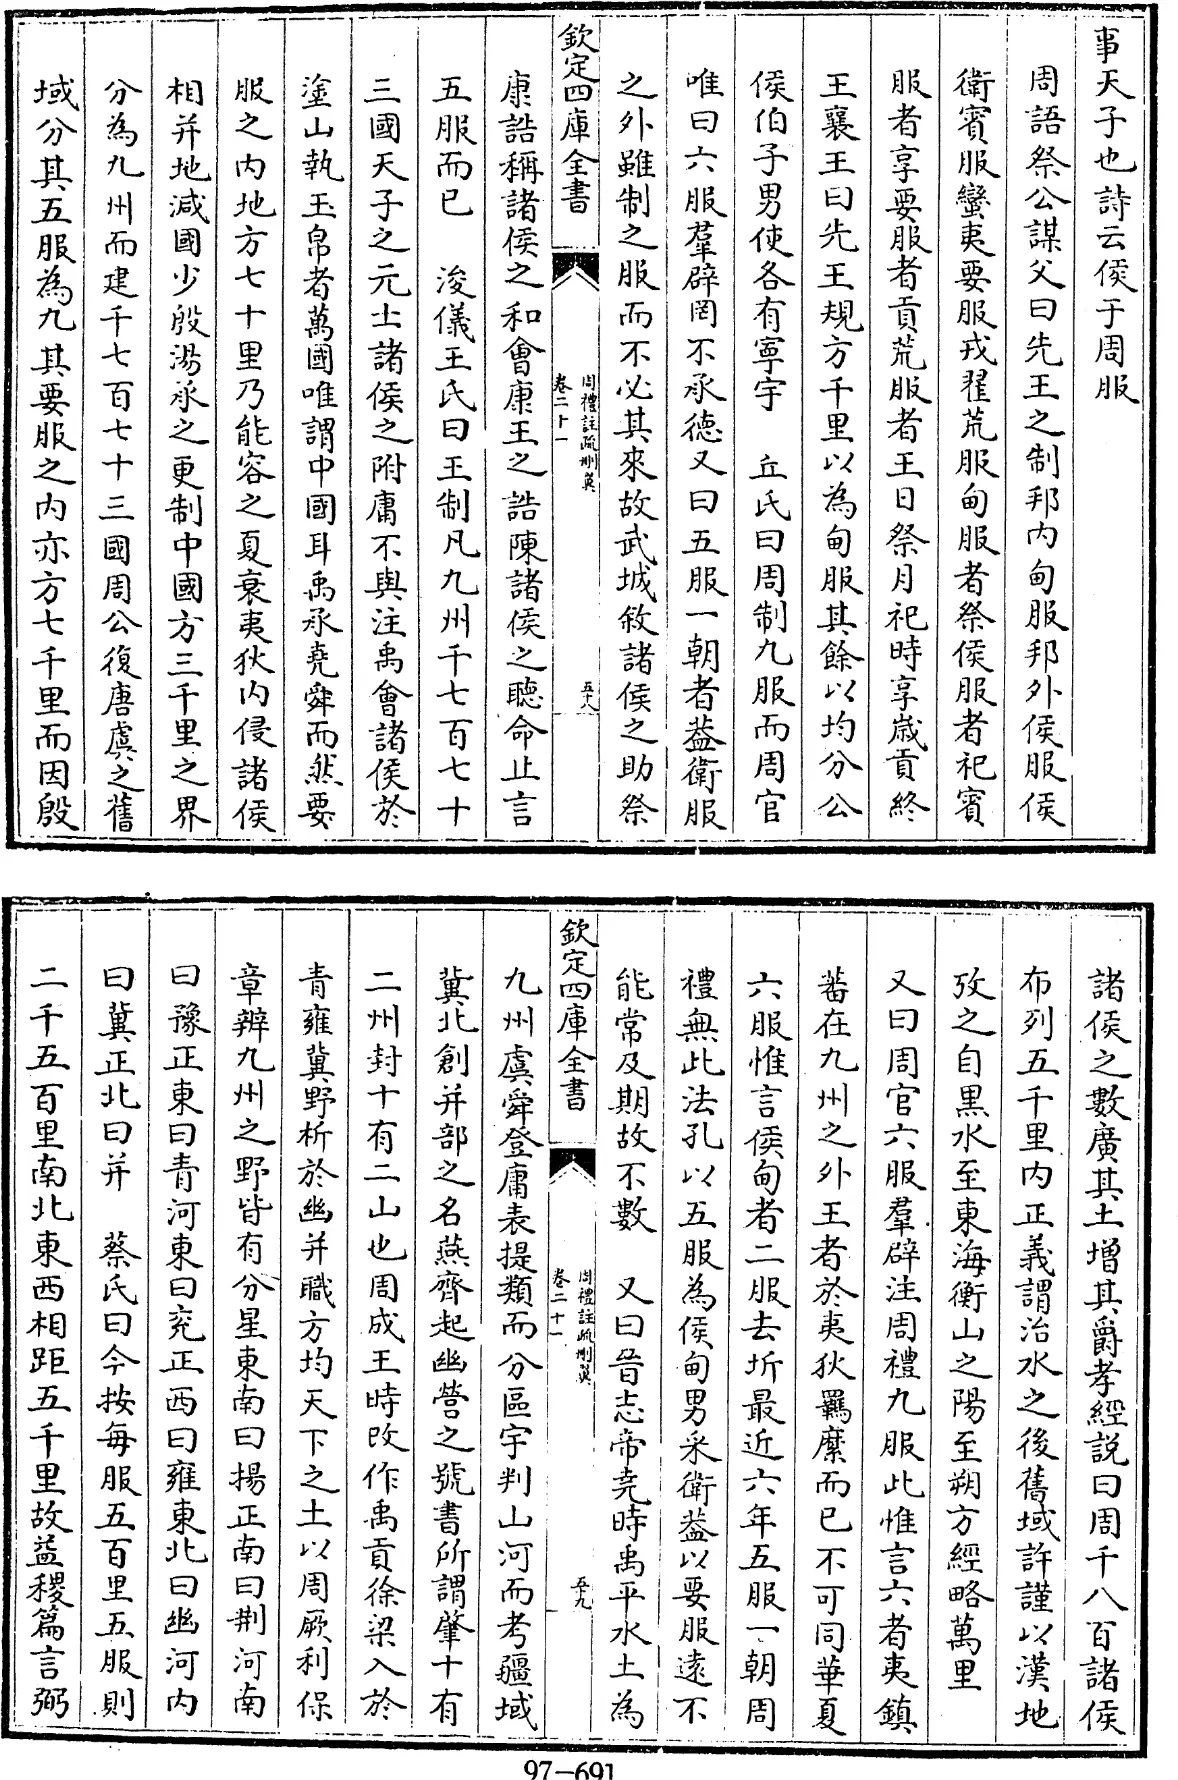 事天子也詩云侯于周服
周語祭公謀父曰先王之制邦内甸服邦外侯服侯
衛賓服蠻夷要服戎翟荒服甸服者祭侯服者祀賓
服者享要服者貢荒服者王日祭月祀時享歲貢終
王襄王曰先王規方千里以為甸服其餘以均分公
侯伯子男使各有寧宇　丘氏曰周制九服而周官
唯曰六服羣辟罔不承德又曰五服一朝者葢衛服
之外雖制之服而不必其來故武城敘諸侯之助祭
欽定四庫全書
周禮註疏刪翼
卷二十一
五八
康誥稱諸侯之和會康王之誥陳諸侯之聽命止言
五服而已　浚儀王氏曰王制凡九州千七百七十
三國天子之元士諸侯之附庸不與注禹會諸侯於
塗山執玉帛者萬國唯謂中國耳禹承堯舜而然要
服之内地方七十里乃能容之夏衰夷狄内侵諸侯
相并地減國少殷湯承之更制中國方三千里之界
分為九州而建千七百七十三國周公復唐虞之舊
域分其五服為九其要服之内亦方七千里而因殷
諸侯之數廣其土增其爵孝經説曰周千八百諸侯
布列五千里内正義謂治水之後舊域許謹以漢地
攷之自黒水至東海衡山之陽至朔方經略萬里
又曰周官六服羣辟注周禮九服此惟言六者夷鎮
蕃在九州之外王者於夷狄羈縻而已不可同華夏
六服惟言侯甸者二服去圻最近六年五服一朝周
禮無此法孔以五服為侯甸男采衛葢以要服遠不
能常及期故不數　又曰晉志帝堯時禹平水土為
欽定四庫全書
周禮註疏刪翼
卷二十一
五九
九州虞舜登庸表提類而分區宇判山河而考疆域
冀北創并部之名燕齊起幽營之號書所謂肇十有
二州封十有二山也周成王時改作禹貢徐梁入於
青雍冀野析於幽并職方均天下之土以周厥利保
章辨九州之野皆有分星東南曰揚正南曰荆河南
曰豫正東曰青河東曰兖正西曰雍東北曰幽河内
曰冀正北曰并　蔡氏曰今按每服五百里五服則
二千五百里南北東西相距五千里故益稷篇言弼
97-691